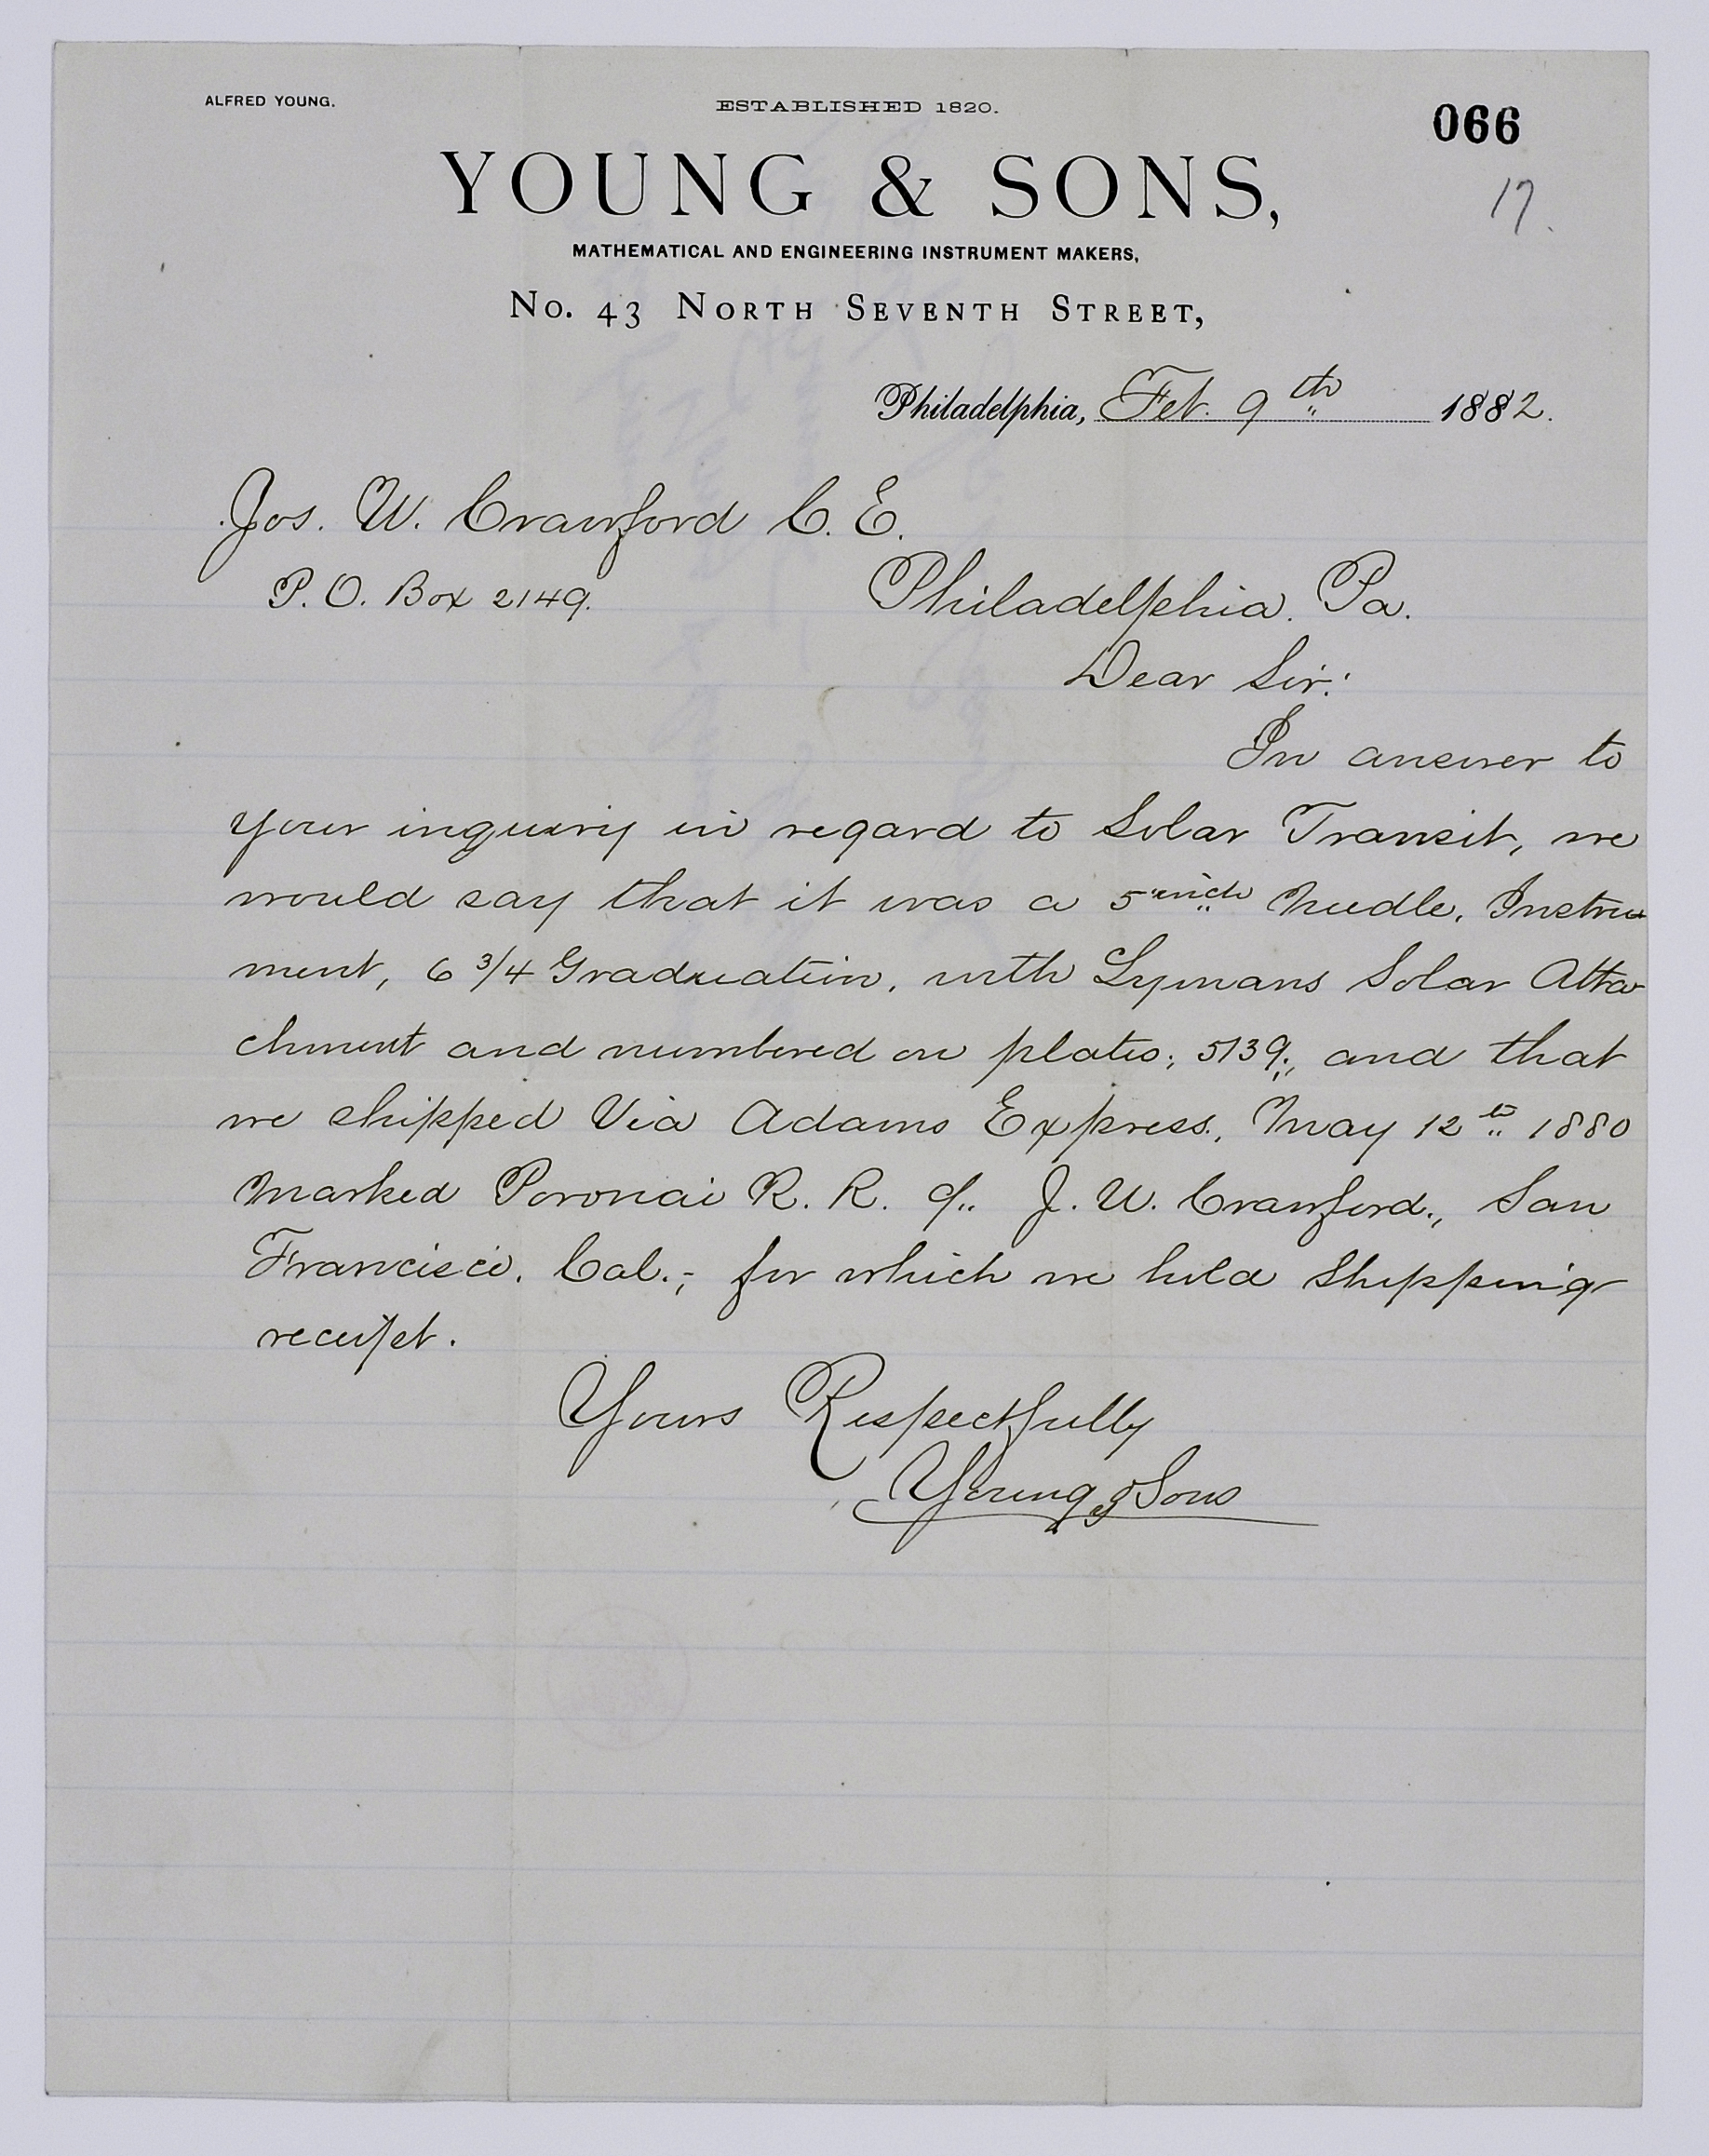 ALFRED YOUNG.
ESTABLISHED 1820.
066
17.
YOUNG & SONS,
MATHEMATICAL AND ENGINEERING INSTRUMENT MAKERS,
No. 43 NORTH SEVENTH STREET,
Philadelphia, Feb. 9th 1882.
Jos. W. Crawford C. E.
P. O. Box 2149.
Philadelphia. Pa.
Dear Sir:
In answer to
your inquiry in regard to Solar Transit, we
would say that it was a 5 inch Needle, Instru
ment, 6 3/4 Graduation, with Lymans Solar Atta
chment and numbered on plates; 5139; and that
we shipped Via Adams Express, May 12th 1880
Marked Poronai R. R. J. W. Crawford., San
Francisco. Cal.; for which we hold Shipping
receipt.
Yours Respectfully
Young & Sons